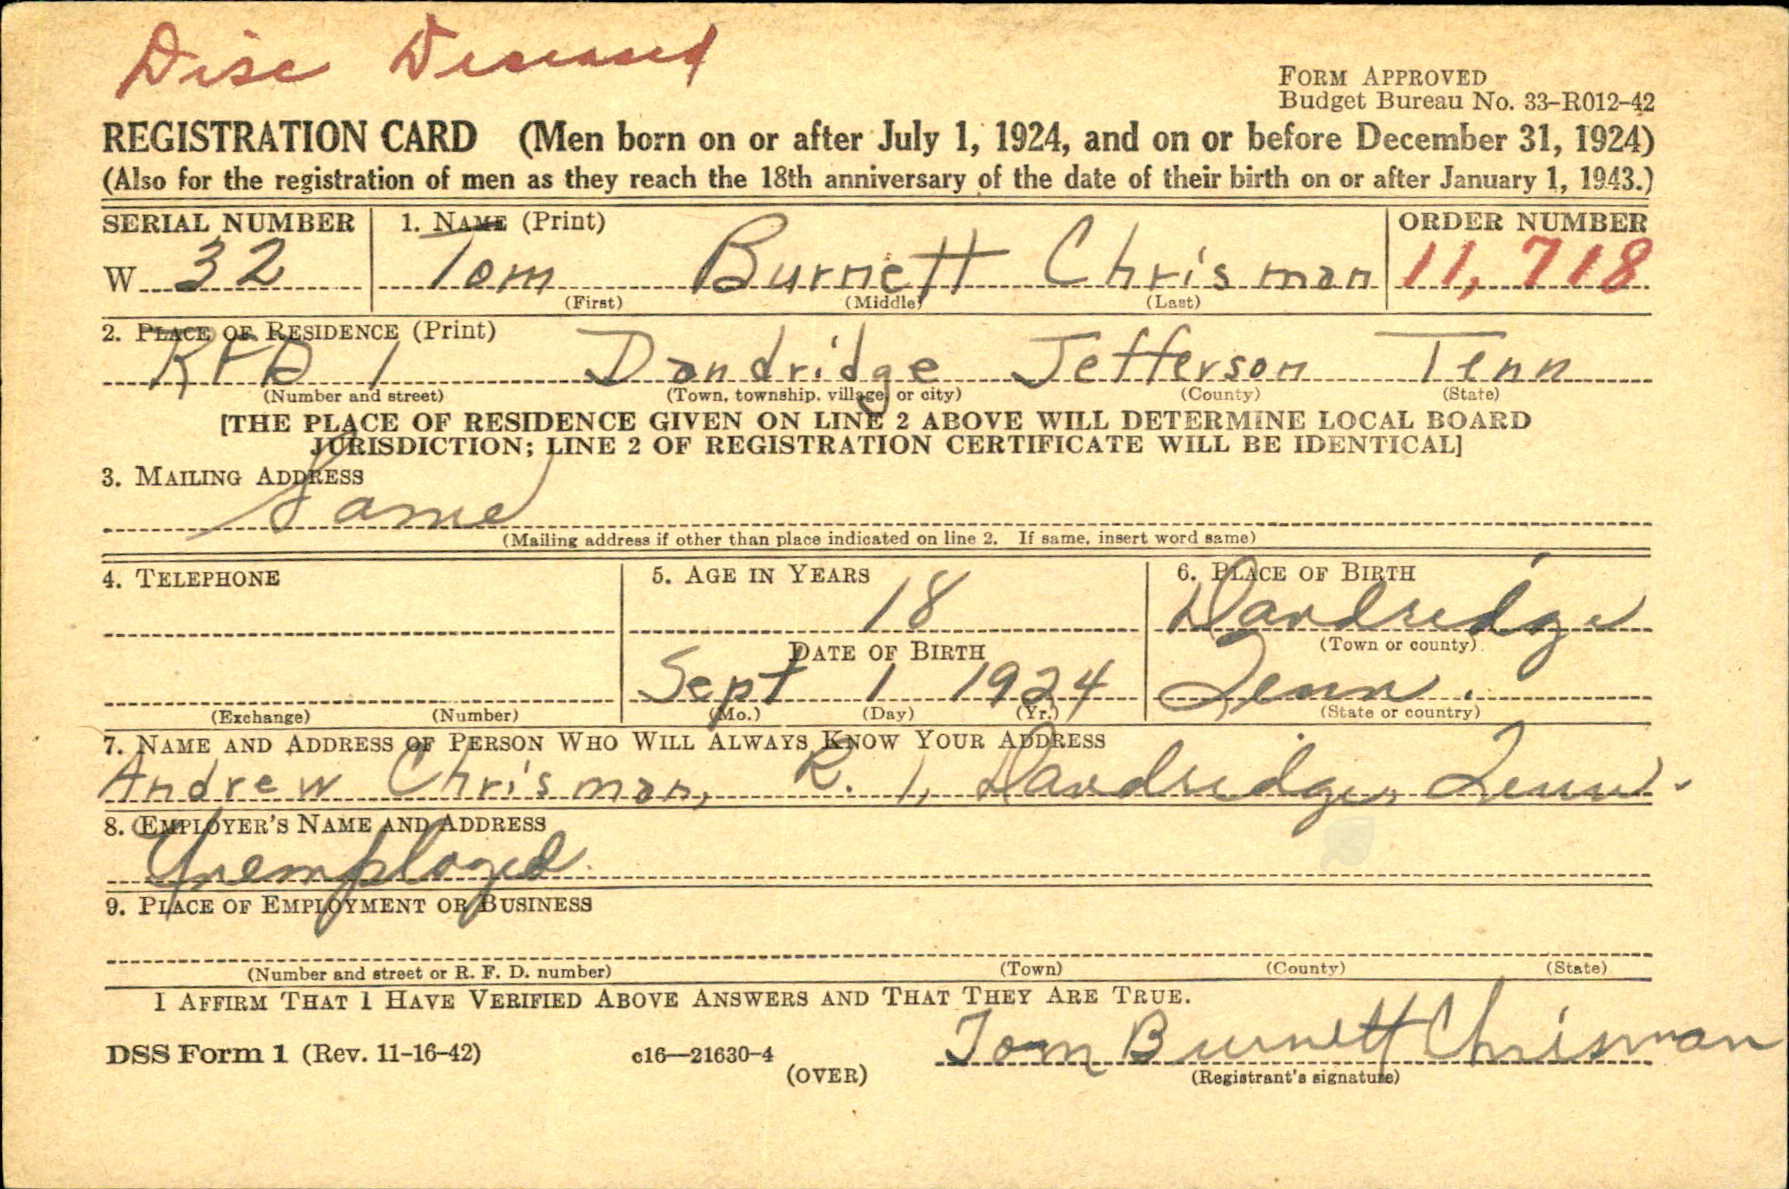 Disc Deseased
FORM APPROVED
Budget Bureau No. 33-R012-42
REGISTRATION CARD (Men born on or after July 1, 1924, and on or before December 31, 1924)
(Also for the registration of men as they reach the 18th anniversary of the date of their birth on or after January 1, 1943.)
SERIAL NUMBER 1. NAME (Print) ORDER NUMBER
W 32 Tom Burnett Chrisman 11,718
(First) (Middle) (Last)
2. PLACE OF RESIDENCE (Print)
RFD 1 Dandridge Jefferson Tenn
(Number and street) (Town, township, village, or city) (County) (State)
[THE PLACE OF RESIDENCE GIVEN ON LINE 2 ABOVE WILL DETERMINE LOCAL BOARD
JURISDICTION; LINE 2 OF REGISTRATION CERTIFICATE WILL BE IDENTICAL]
3. MAILING ADDRESS
Same
(Mailing address if other than place indicated on line 2. If same, insert word same)
4. TELEPHONE 5. AGE IN YEARS 6. PLACE OF BIRTH
18 Dandridge
DATE OF BIRTH (Town or county)
Sept 1 1924 Tenn.
(Exchange) (Number) (Mo.) (Day) (Yr.) (State or country)
7. NAME AND ADDRESS OF PERSON WHO WILL ALWAYS KNOW YOUR ADDRESS
Andrew Chrisman, R. 1, Dandridge, Tenn.
8. EMPLOYER'S NAME AND ADDRESS
Unemployed
9. PLACE OF EMPLOYMENT OR BUSINESS
(Number and street or R. F. D. number) (Town) (County) (State)
I AFFIRM THAT I HAVE VERIFIED ABOVE ANSWERS AND THAT THEY ARE TRUE.
Tom Burnett Chrisman
DSS Form 1 (Rev. 11-16-42) c16—21630-4 (OVER) (Registrant's signature)